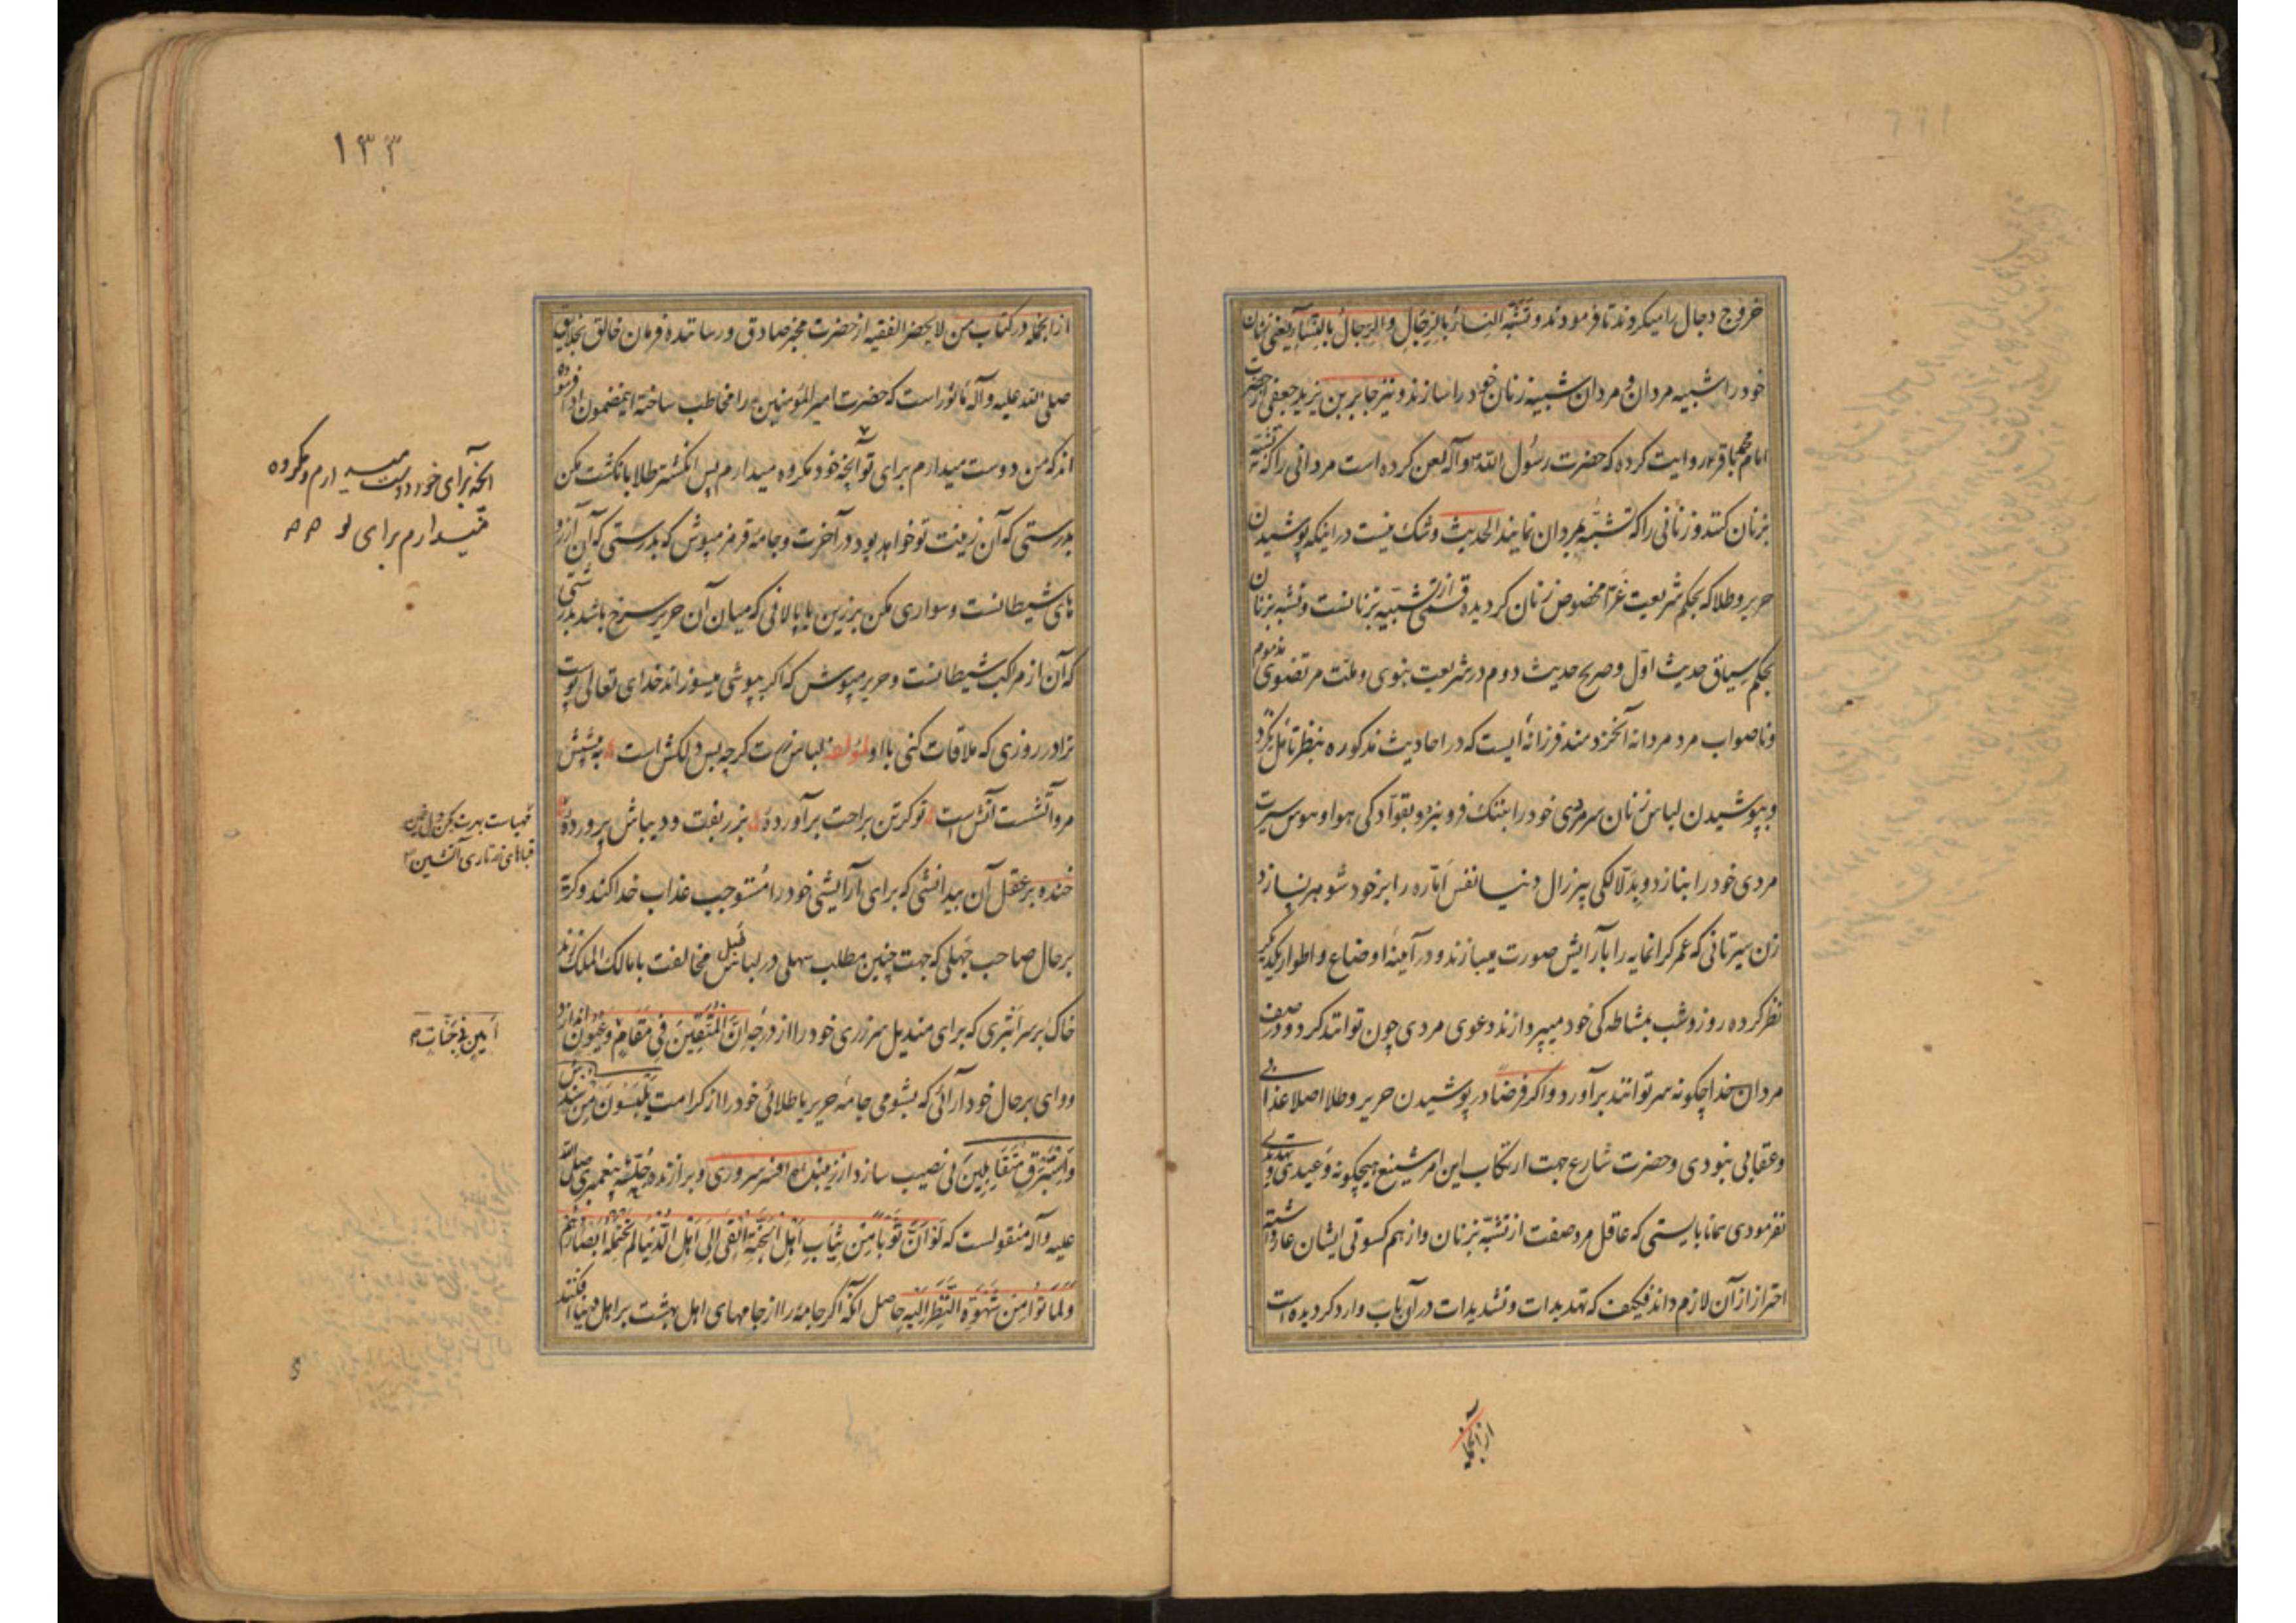 خروج دجال را میکردند تا فرمودند و تشبه النساء بالرجال والرجال بالنساء یعنی زنان
خود را شبیه مردان و مردان شبیه زنان خود را سازند و نیز جابر بن یزید جعفی از حضرت
امام محمد باقر روایت کرده که حضرت رسول الله و آله لعن کرده است مردانی را که تشبه
بزنان کنند و زنانی را که تشبه بمردان نمایند الحدیث و شک نیست در اینکه پوشیدن
حریر و طلا که بحکم شریعت غرا مخصوص زنان کردیده قسمی از تشبیه بزنانست و تشبه بزنان
بحکم سیاق حدیث اول و صریح حدیث دوم در شریعت نبوی و ملت مرتضوی مذموم
و ناصواب مرد مردانه آنخردمند فرزانه ایست که در احادیث مذکوره بنظر تامل نکرد
و بپوشیدن لباس زنان سر مردی خود را بننک فرو نبرد و بقوادکی هوا و هوس سیرت
مردی خود را نبازد و بدلالکی پیرزال دنیا نفس اماره را بر خود شوهر نسازد
زن سیرتانی که عمر کرانمایه را بآرایش صورت میبازند و در آیینه اوضاع و اطوار یکدیکر
نظر کرده روز و شب بمشاطه کی خود میپردازند دعوی مردی چون توانند کرد و در صف
مردان خدا چکونه سر توانند برآورد و اکر فرضا در پوشیدن حریر و طلا اصلا عذابی
و عقابی نبودی و حضرت شارع جهت ارتکاب این امر شنیع هیچکونه وعیدی و تهدیدی
نفرمودی همانا بایستی که عاقل مرد صفت از تشبه بزنان و از هم کسوتی ایشان عار داشته
احتراز از آن لازم داند فکیف که تهدیدات و تشدیدات در آن باب وارد کردیده است
از آنجمله
۱۳۳
از آنجمله در کتاب من لا یحضر الفقیه از حضرت مخبر صادق و رساننده فرمان خالق بخلایق
صلی الله علیه و آله ماثور است که حضرت امیر المؤمنین را مخاطب ساخته اینمضمون ادا فرموده
اند که من دوست میدارم برای تو آنچه خود مکروه میدارم پس انکشتر طلا بانکشت مکن
بدرستی که آن زینت تو خواهد بود در آخرت و جامه قرمز مپوش که بدرستی که آن از ردا
های شیطانست و سواری مکن بر زین یا پالانی که میان آن حریر سرخ باشد بدرستی
که آن از مراکب شیطانست و حریر مپوش که اکر بپوشی میسوزاند خدای تعالی پوست
ترا در روزی که ملاقات کنی با او لمؤلفه لباس زرت کرچه بس دلکش است به پیش
مرو آتشست آتش است تو کر تن براحت برآورده بزربفت و دیباش پرورده
خنده بر عقل آن بیدانشی که برای آرایشی خود را مستوجب عذاب خدا کند و کریه
بر حال صاحب جهلی که جهت چنین مطلب سهلی در لباس مخالفت با مالک الملک زند
خاک بر سر ابتری که برای مندیل سرزری خود را از درجه ان المتقین فی مقام و عیون اندازد
و وای بر حال خودآرائی که بشومی جامه حریر یا طلائی خود را از کرامت یلبسون من سندس
واستبرق متقابلین بی نصیب سازد از زیبنده افسر سروری و برازنده خلعت پیغمبری صلی الله
علیه و آله منقولست که لو ان ثوبا من ثیاب اهل الجنة القی الی اهل الدنیا لم تحتمله ابصارهم
ولماتوا من شهوة النظر الیه حاصل آنکه اکر جامه را از جامهای اهل بهشت بر اهل دنیا افکنند
آنچه برای خود دوست میدارم و مکروه
میدارم برای تو
قباهای زرتاری آتشین
امین فی جنات